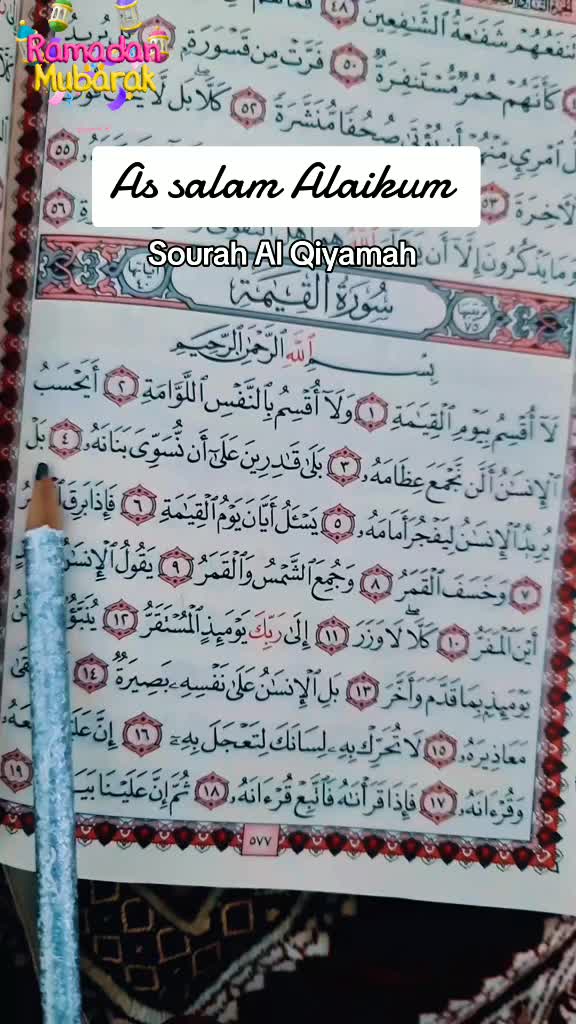 Ramadan
Mubarak
As salam Alaikum
Sourah Al Qiyamah
شَفَٰعَةُ ٱلشَّٰفِعِينَ ٤٨
كَأَنَّهُمْ حُمُرٌ مُّسْتَنفِرَةٌ ٥٠ فَرَّتْ مِن قَسْوَرَةٍ
صُحُفًا مُّنَشَّرَةً ٥٢ كَلَّا بَل لَّا
ٱلْءَاخِرَةَ ٥٣ ٥٥
وَمَا يَذْكُرُونَ إِلَّا أَن ٥٦
سُورَةُ ٱلْقِيَٰمَةِ
بِسْمِ ٱللَّهِ ٱلرَّحْمَٰنِ ٱلرَّحِيمِ
لَآ أُقْسِمُ بِيَوْمِ ٱلْقِيَٰمَةِ ١ وَلَآ أُقْسِمُ بِٱلنَّفْسِ ٱللَّوَّامَةِ ٢ أَيَحْسَبُ
ٱلْإِنسَٰنُ أَلَّن نَّجْمَعَ عِظَامَهُۥ ٣ بَلَىٰ قَٰدِرِينَ عَلَىٰٓ أَن نُّسَوِّىَ بَنَانَهُۥ ٤ بَلْ
يُرِيدُ ٱلْإِنسَٰنُ لِيَفْجُرَ أَمَامَهُۥ ٥ يَسْـَٔلُ أَيَّانَ يَوْمُ ٱلْقِيَٰمَةِ ٦ فَإِذَا بَرِقَ
٧ وَخَسَفَ ٱلْقَمَرُ ٨ وَجُمِعَ ٱلشَّمْسُ وَٱلْقَمَرُ ٩ يَقُولُ ٱلْإِنسَٰنُ
أَيْنَ ٱلْمَفَرُّ ١٠ كَلَّا لَا وَزَرَ ١١ إِلَىٰ رَبِّكَ يَوْمَئِذٍ ٱلْمُسْتَقَرُّ ١٢ يُنَبَّؤُا۟
يَوْمَئِذٍۭ بِمَا قَدَّمَ وَأَخَّرَ ١٣ بَلِ ٱلْإِنسَٰنُ عَلَىٰ نَفْسِهِۦ بَصِيرَةٌ ١٤
مَعَاذِيرَهُۥ ١٥ لَا تُحَرِّكْ بِهِۦ لِسَانَكَ لِتَعْجَلَ بِهِۦٓ ١٦ إِنَّ
وَقُرْءَانَهُۥ ١٧ فَإِذَا قَرَأْنَٰهُ فَٱتَّبِعْ قُرْءَانَهُۥ ١٨ ثُمَّ إِنَّ عَلَيْنَا ١٩
٥٧٧